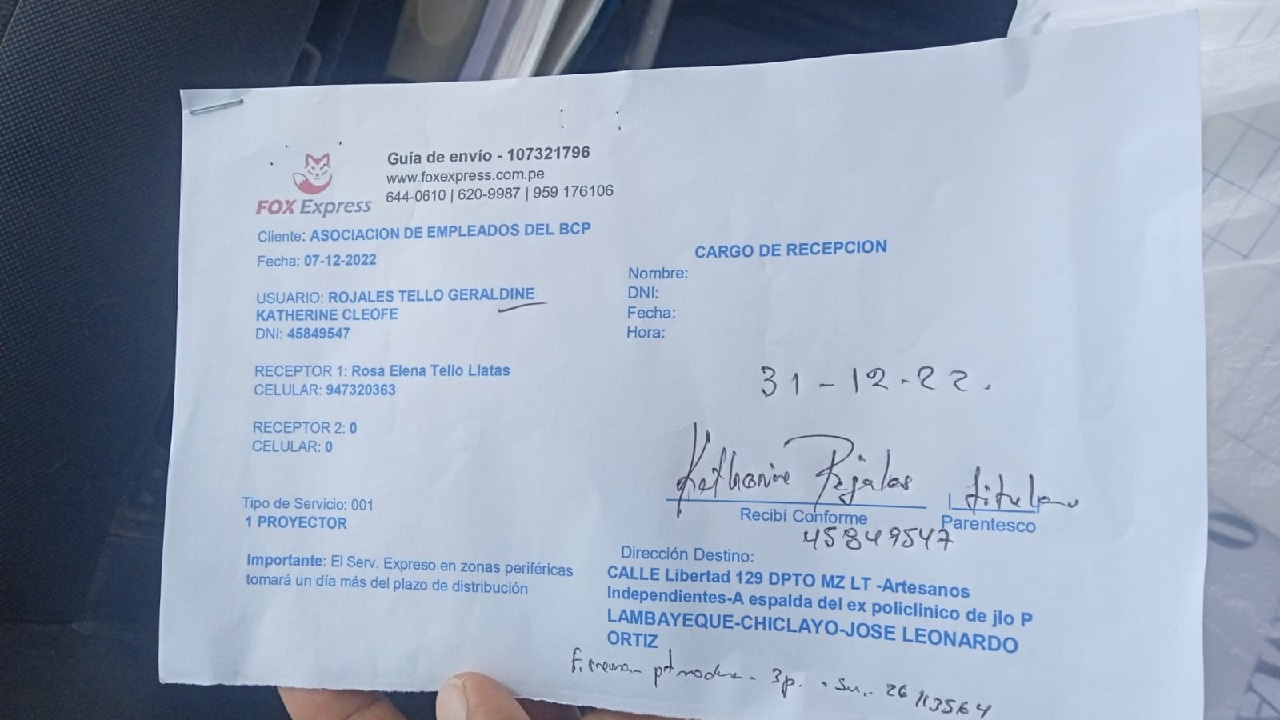 Guía de envío - 107321796
www.foxexpress.com.pe
644-0610 | 620-9987 | 959 176106
FOX Express
Cliente: ASOCIACION DE EMPLEADOS DEL BCP
Fecha: 07-12-2022
USUARIO: ROJALES TELLO GERALDINE
KATHERINE CLEOFE
DNI: 45849547
RECEPTOR 1: Rosa Elena Tello Llatas
CELULAR: 947320363
RECEPTOR 2: 0
CELULAR: 0
Tipo de Servicio: 001
1 PROYECTOR
Importante: El Serv. Expreso en zonas periféricas
tomará un día más del plazo de distribución
CARGO DE RECEPCION
Nombre:
DNI:
Fecha:
Hora:
31-12-22.
Katherine Rojales titular
Recibí Conforme Parentesco
45849547
Dirección Destino:
CALLE Libertad 129 DPTO MZ LT -Artesanos
Independientes-A espalda del ex policlinico de jlo P
LAMBAYEQUE-CHICLAYO-JOSE LEONARDO
ORTIZ
3p. Su. 26113564